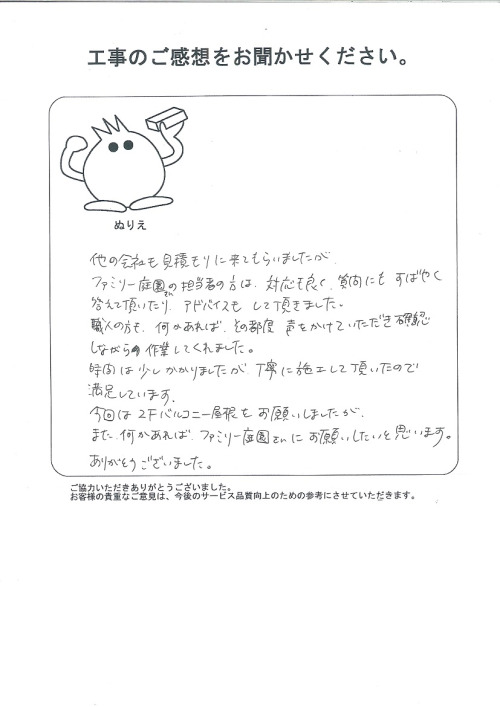 工事のご感想をお聞かせください。
ぬりえ
他の会社も見積もりに来てもらいましたが、
ファミリー庭園さんの担当者の方は、対応も良く、質問にもすばやく
答えて頂いたり、アドバイスもして頂きました。
職人の方も、何かあれば、その都度声をかけていただき確認
しながらの作業してくれました。
時間は少しかかりましたが、丁寧に施工して頂いたので
満足しています。
今回は2Fバルコニー屋根をお願いしましたが、
また、何かあれば、ファミリー庭園さんにお願いしたいと思います。
ありがとうございました。
ご協力いただきありがとうございました。
お客様の貴重なご意見は、今後のサービス品質向上のための参考にさせていただきます。